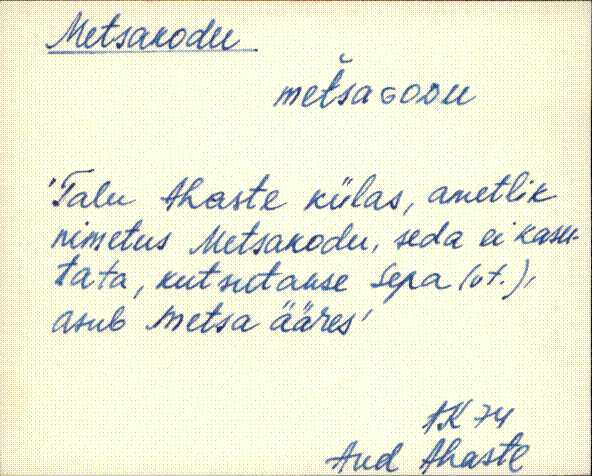 Metsakodu
metšaGODU
'Talu Ahaste külas, ametlik
nimetus Metsakodu, seda ei kasu-
tata, kutsutakse Sepa (vt.),
asub metsa ääres'
AK 74
Aud Ahaste